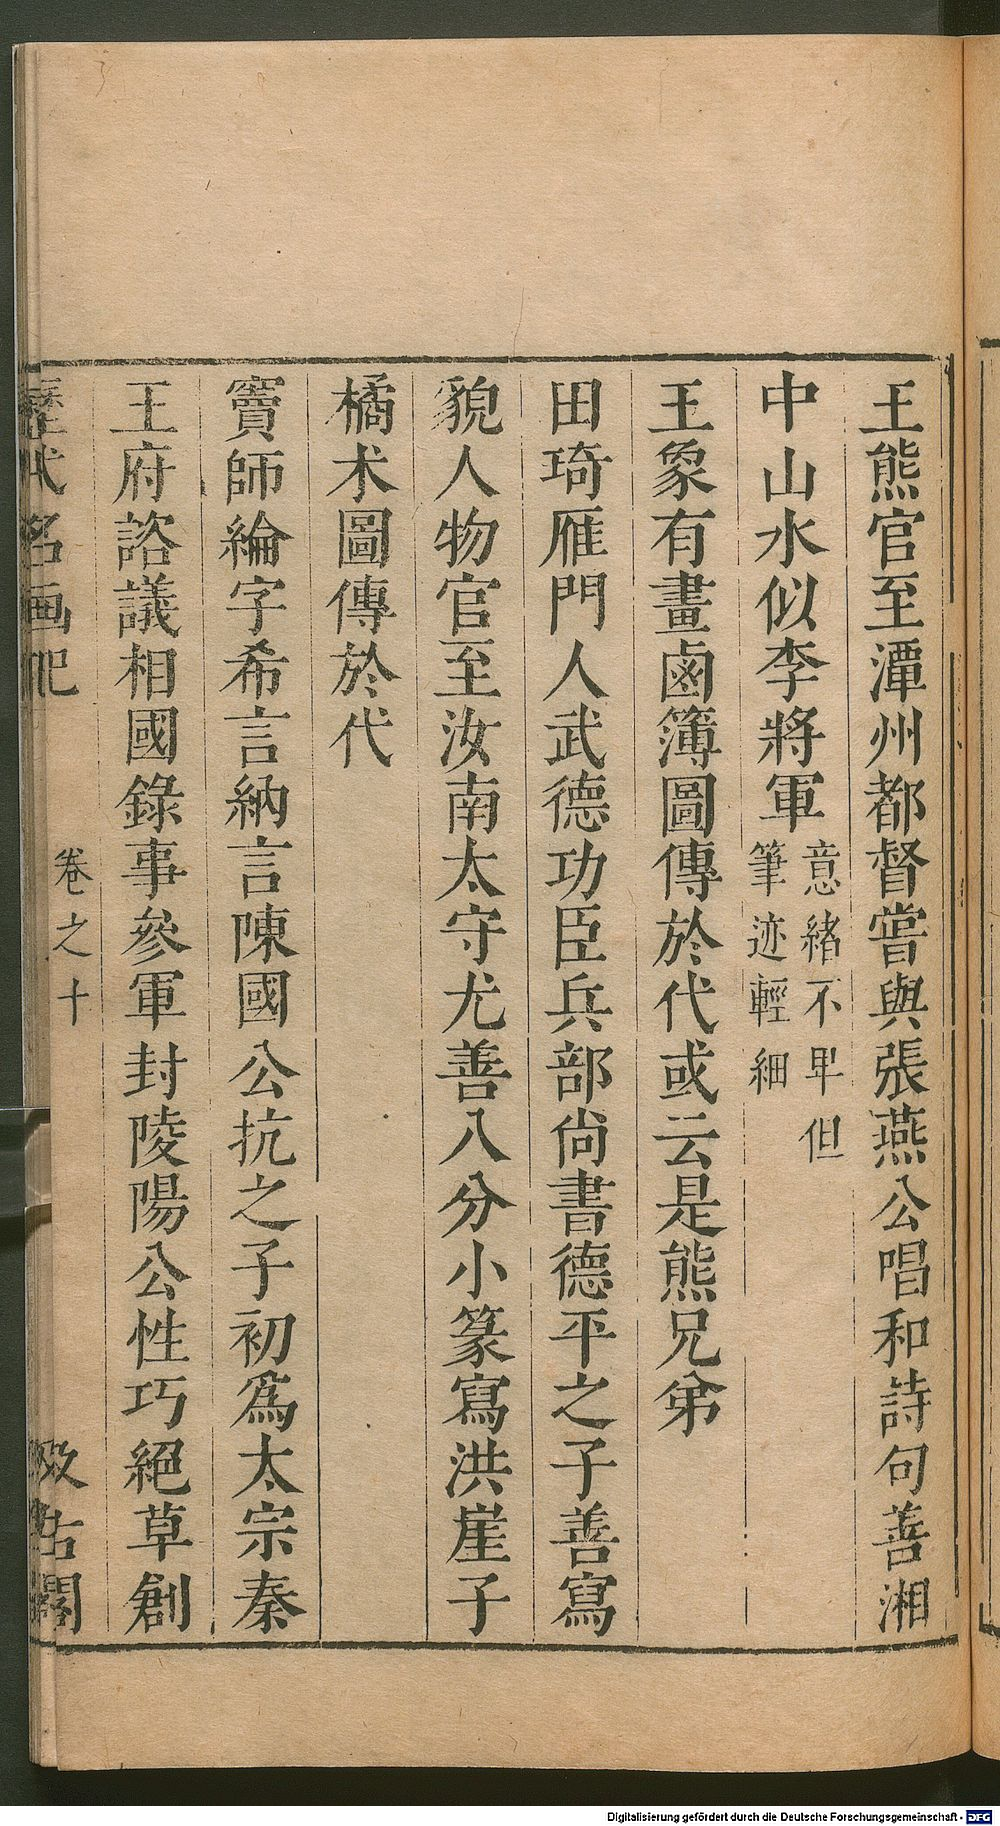 王熊官至潭州都督嘗與張燕公唱和詩句善湘
中山水似李將軍意緒不卑但筆迹輕細
王象有畫鹵簿圖傳於代或云是熊兄弟
田琦雁門人武德功臣兵部尚書德平之子善寫
貌人物官至汝南太守尤善八分小篆寫洪崖子
橘术圖傳於代
竇師綸字希言納言陳國公抗之子初爲太宗秦
王府諮議相國錄事參軍封陵陽公性巧絕草創
歷代名画記 卷之十 汲古閣
Digitalisierung gefördert durch die Deutsche Forschungsgemeinschaft - DFG